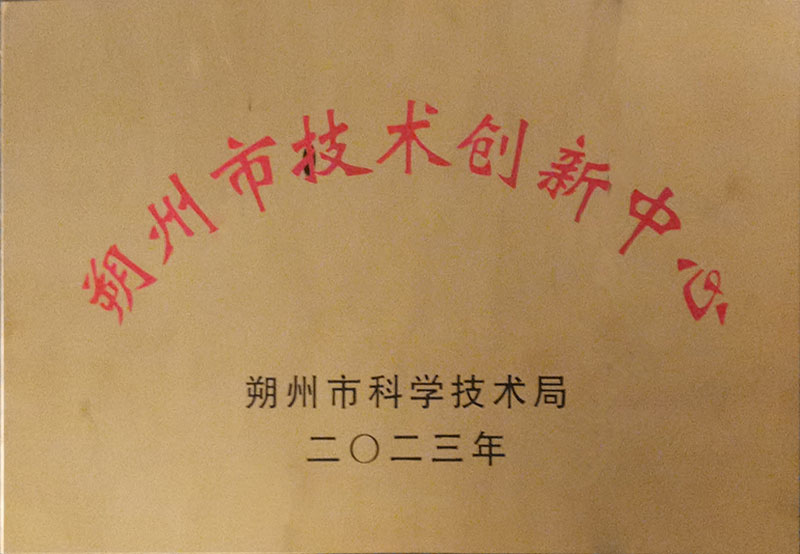 朔州市技术创新中心
朔州市科学技术局
二〇二三年